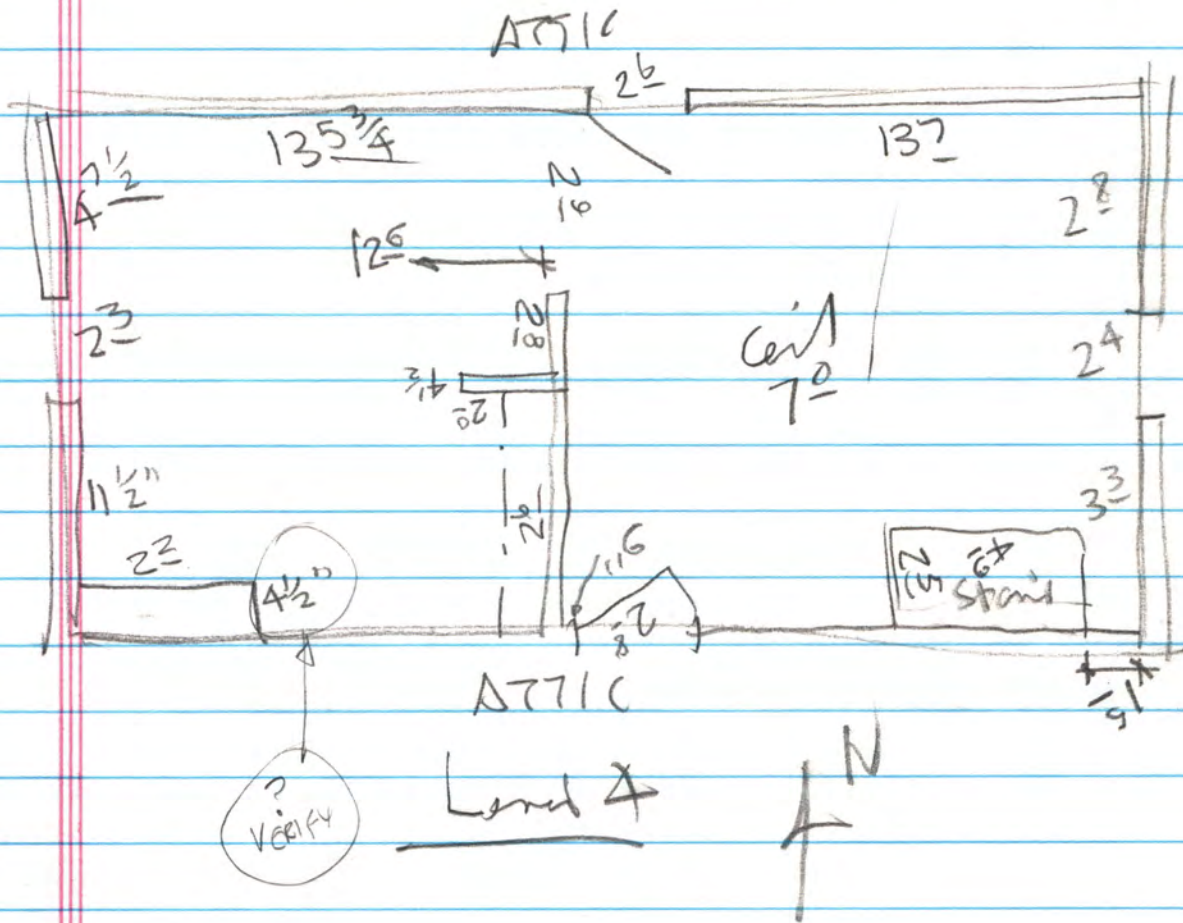 ATTIC
2 6
13 5 3/4
13 7
4 7 1/2
2 8
2 6
12 6
2 3
2 8
Ceil
7 0
2 4
4 1/2
2 0
11 1/2"
3 3
2 2
4 1/2"
6"
2 8
2 5
4 9
Stairs
ATTIC
?
VERIFY
Level 4
N